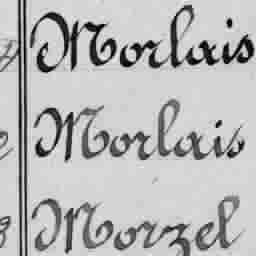 Morlais
Morlais
Morzel